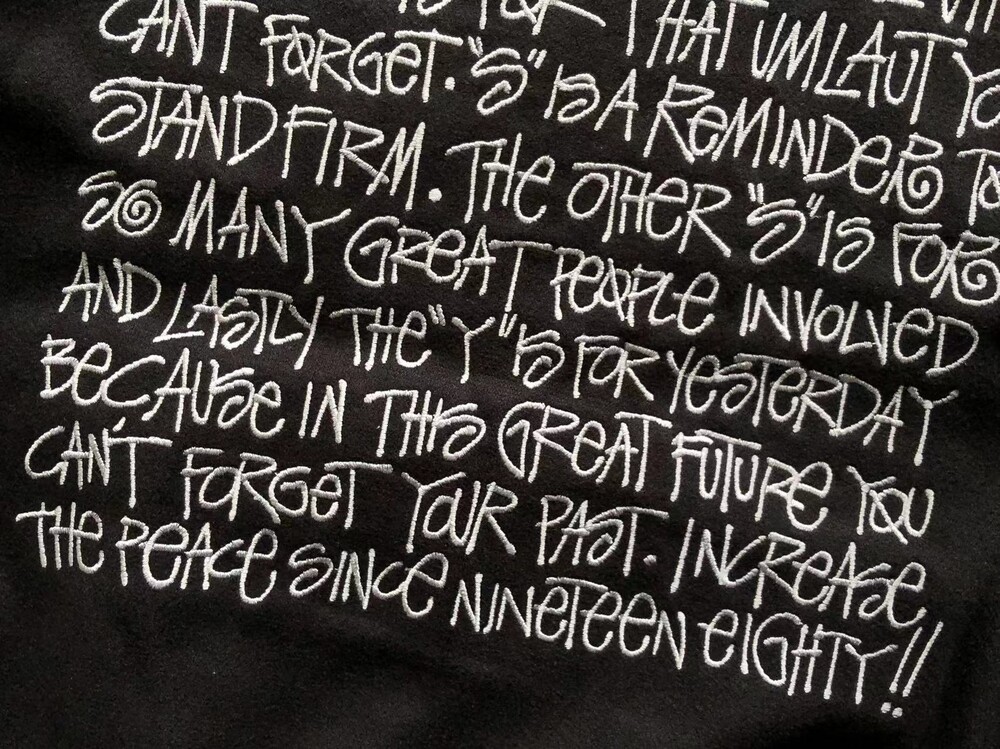 THAT UMLAUT
CAN'T FORGET. "S" IS A REMINDER
STAND FIRM. THE OTHER "S" IS FOR
SO MANY GREAT PEOPLE INVOLVED
AND LASTLY THE "Y" IS FOR YESTERDAY
BECAUSE IN THIS GREAT FUTURE YOU
CAN'T FORGET YOUR PAST. INCREASE
THE PEACE SINCE NINETEEN EIGHTY!!